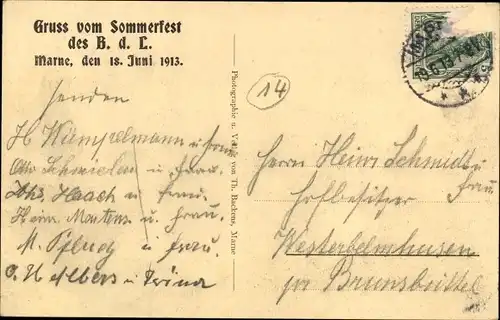 Gruss vom Sommerfest
des B. d. L.
Marne, den 18. Juni 1913.
Senden
H Wümpelmann u Frau
Otto Schmielau u Frau.
Johs. Haach u Frau.
Hein. Martens u. Frau,
M. Pflueg u Frau.
H Albers u Trina
Photographie u. Verlag von Th. Backens, Marne
14
Herrn Heinr Schmidt u
Frau
Hofbesitzer
Westerbelmhusen
pr Brunsbüttel